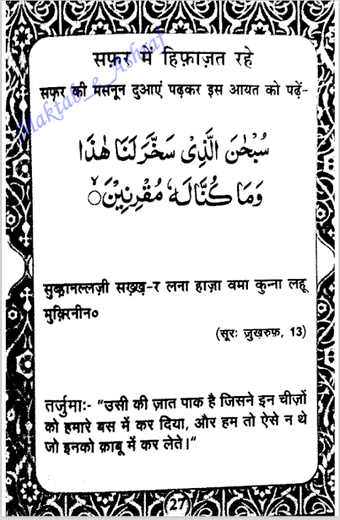 Maktab_e_Ashraf
सफ़र में हिफ़ाज़त रहे
सफ़र की मसनून दुआएं पढ़कर इस आयत को पढ़ें-
سُبْحٰنَ الَّذِیْ سَخَّرَ لَنَا هٰذَا
وَمَا كُنَّا لَهٗ مُقْرِنِیْنَ ۙ○
सुब्हानल्लज़ी सख़्ख़-र लना हाज़ा वमा कुन्ना लहू
मुक़्रिनीन०
(सूरः ज़ुख़रुफ़, 13)
तर्जुमाः- "उसी की ज़ात पाक है जिसने इन चीज़ों
को हमारे बस में कर दिया, और हम तो ऐसे न थे
जो इनको क़ाबू में कर लेते।"
27